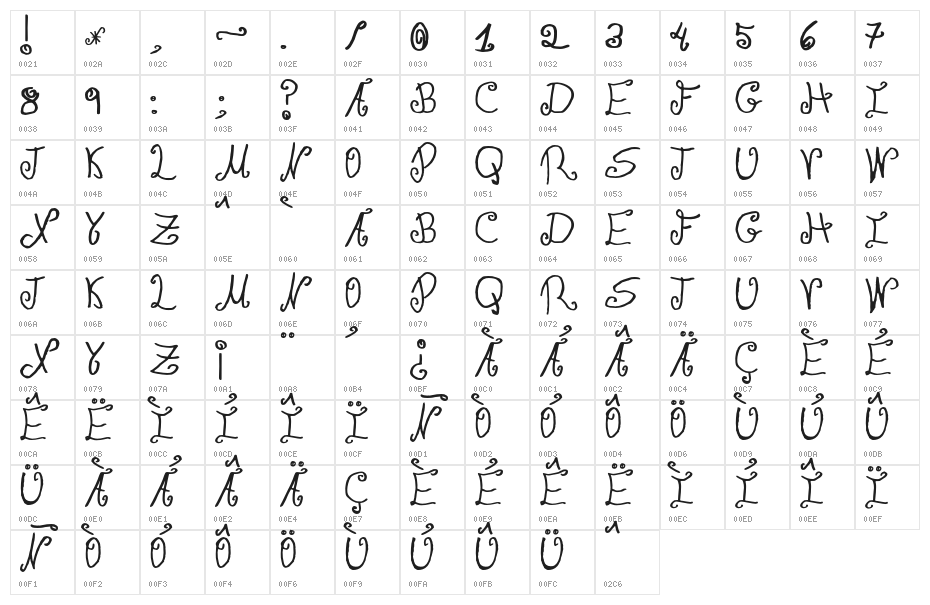 ! * , - . / 0 1 2 3 4 5 6 7
0021 002A 002C 002D 002E 002F 0030 0031 0032 0033 0034 0035 0036 0037
8 9 : ; ? A B C D E F G H I
0038 0039 003A 003B 003F 0041 0042 0043 0044 0045 0046 0047 0048 0049
J K L M N O P Q R S T U V W
004A 004B 004C 004D 004E 004F 0050 0051 0052 0053 0054 0055 0056 0057
X Y Z ^ ` A B C D E F G H I
0058 0059 005A 005E 0060 0061 0062 0063 0064 0065 0066 0067 0068 0069
J K L M N O P Q R S T U V W
006A 006B 006C 006D 006E 006F 0070 0071 0072 0073 0074 0075 0076 0077
X Y Z ¡ ¨ ´ ¿ À Á Â Ä Ç È É
0078 0079 007A 00A1 00A8 00B4 00BF 00C0 00C1 00C2 00C4 00C7 00C8 00C9
Ê Ë Ì Í Î Ï Ñ Ò Ó Ô Ö Ù Ú Û
00CA 00CB 00CC 00CD 00CE 00CF 00D1 00D2 00D3 00D4 00D6 00D9 00DA 00DB
Ü À Á Â Ä Ç È É Ê Ë Ì Í Î Ï
00DC 00E0 00E1 00E2 00E4 00E7 00E8 00E9 00EA 00EB 00EC 00ED 00EE 00EF
Ñ Ò Ó Ô Ö Ù Ú Û Ü ˆ
00F1 00F2 00F3 00F4 00F6 00F9 00FA 00FB 00FC 02C6